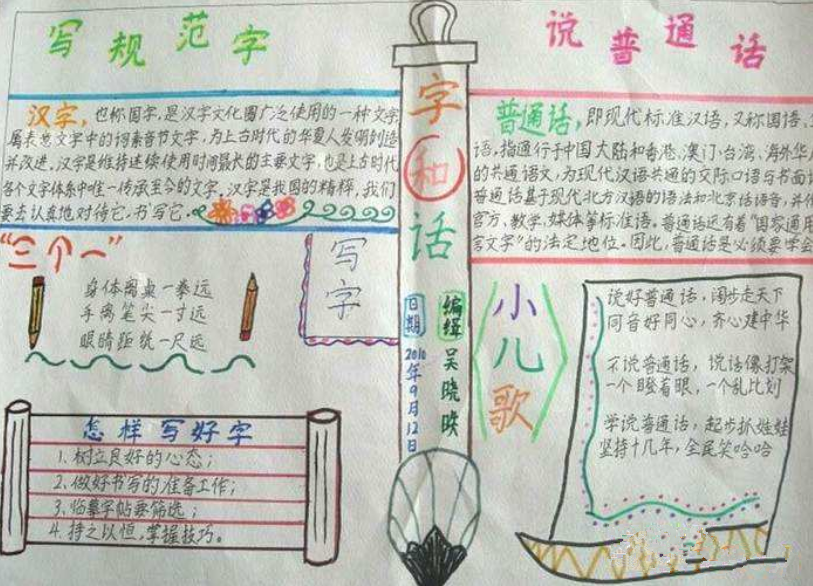 写规范字
汉字，也称国字，是汉字文化圈广泛使用的一种文字
属表意文字中的词素音节文字，为上古时代的华夏人发明创造
并改进。汉字是维持连续使用时间最长的主要文字，也是上古时代
各个文字体系中唯一传承至今的文字。汉字是我国的精粹，我们
要去认真地对待它，书写它。
“三个一”
身体离桌一拳远
手离笔尖一寸远
眼睛距纸一尺远
写字
怎样写好字
1、树立良好的心态；
2、做好书写的准备工作；
3、临摹字帖要筛选；
4、持之以恒，掌握技巧。
字和话
日期
2010年9月12日
编辑
吴晓
说普通话
普通话，即现代标准汉语，又称国语、
语，指通行于中国大陆和香港、澳门、台湾、海外华
的共通语文，为现代汉语共通的交际口语与书面
普通话基于现代北方汉语的语法和北京话语音，并
官方、教学、媒体等标准语。普通话还有着“国家通用
言文字”的法定地位。因此，普通话是必须要学会
小儿歌
说好普通话，阔步走天下
同音好同心，齐心建中华
不说普通话，说话像打架
一个瞪着眼，一个乱比划
学说普通话，起步抓娃娃
坚持十几年，全民笑哈哈